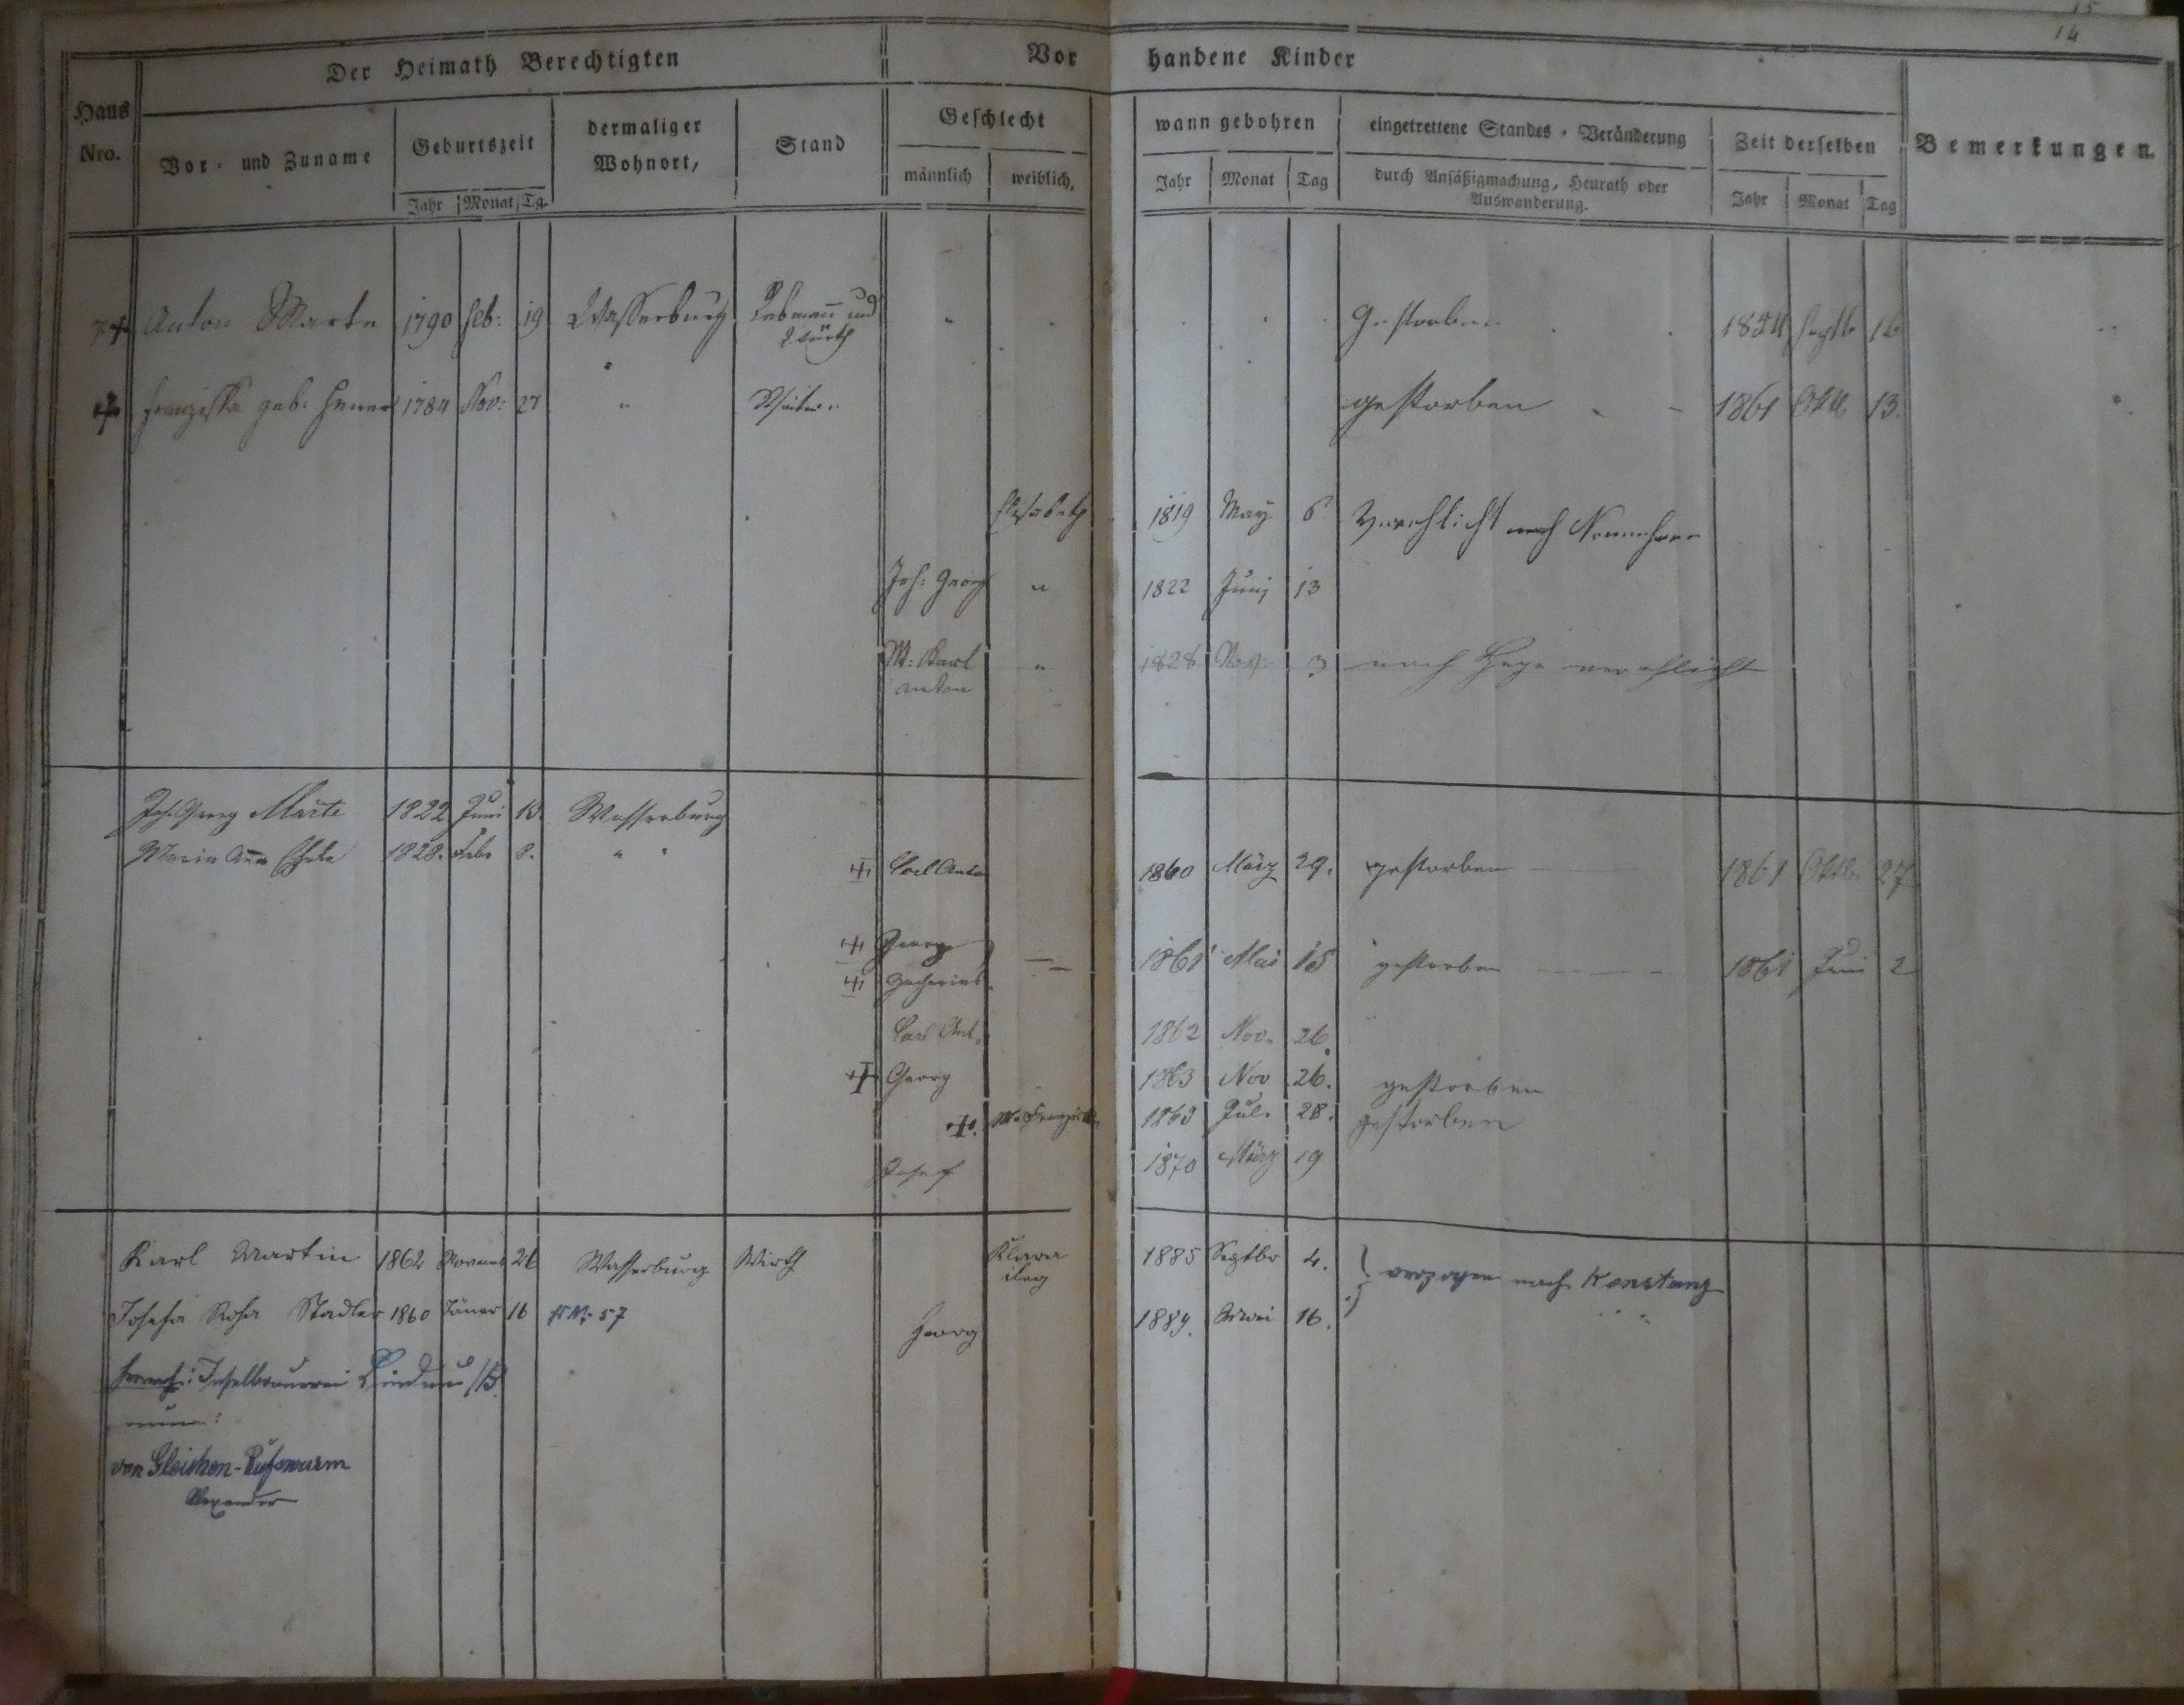 15
14
Der Heimath Berechtigten
Vor handene Kinder
Haus Nro.
Vor- und Zuname
Geburtszeit
Jahr Monat Tg.
dermaliger Wohnort,
Stand
Geschlecht
männlich weiblich,
wann gebohren
Jahr Monat Tag
eingetrettene Standes-Veränderung
durch Ansäßigmachung, Heurath oder
Auswanderung.
Zeit derselben
Jahr Monat Tag
Bemerkungen.
Anton Marte 1790 Feb: 19 Wasserburg Rebmañ und Gestorben 1854 Septb 16
Würth
Franziska geb: 1784 Nov: 27 " gestorben 1861 Oktb 13.
Elisabeth 1819 May 6 Verehlicht nach Nonnenhorn
Joh: Georg " 1822 Junj 13
M: Karl " 1828 Nov: 3 nach Hege verehlicht
Anton
Joh. Georg Marte 1822 Juni 13. Wasserburg
Maria Aña 1828. Febr 8. " "
Carl Anton 1860 März 29. gestorben 1861 Oktb. 27
Georg
1861 Mai 15 gestorben 1861 Juni 2
Zacharias
Carl Ant. 1862 Nov. 26.
Georg 1863 Nov 26. gestorben
M. Franziska Juli 28. gestorben
Josef 1870 März 19
Karl Martin 1862 Novemb 26 Wasserburg Wirth Klara 1885 Septbr 4.
verzogen nach Konstanz
Josefa Rosa Stadler 1860 Jäner 16 H№ 57 Georg 1889. Mai 16.
Inselbrauerei Lindau /B.
nun:
von Gleichen-Rußwurm
Alexander